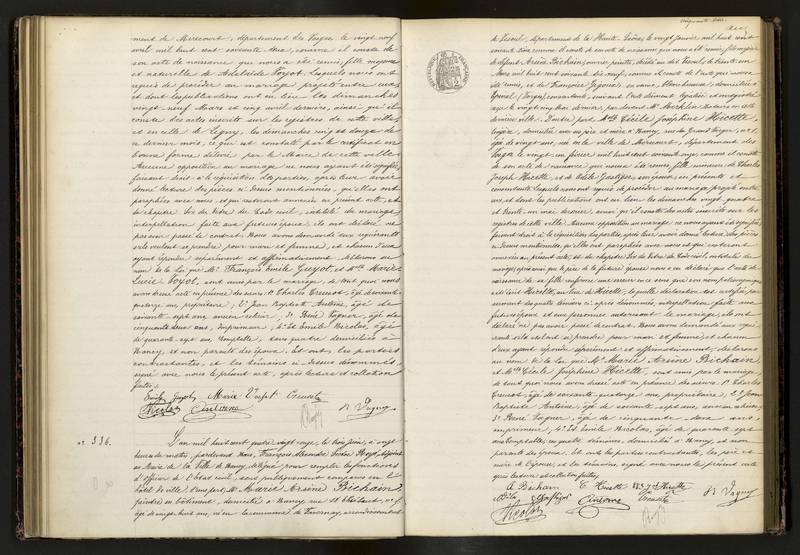 ment de Mirecourt, département des Vosges le vingt neuf
avril mil huit cent soixante deux, comme il conste de
son acte de naissance que nous a été remis, fille majeure
et naturelle de Adélaïde Voyot. Lesquels nous ont
requis de procéder au mariage projeté entre eux,
et dont les publications ont eu lieu les dimanches
vingt neuf Mars et cinq avril derniers, ainsi qu'il
conste des actes inscrits sur les registres de cette ville,
et en celle de Ligny, les dimanches cinq et douze de
ce dernier mois, ce qui est constaté par le certificat en
bonne forme délivré par le Maire de cette ville.
Aucune opposition au mariage ne nous ayant été signifiée,
faisant droit à la réquisition des parties, après leur avoir
donné lecture des pièces ci-dessus mentionnées, qu'elles ont
paraphées avec nous, et qui resteront annexées au présent acte, et
du chapitre six du titre du Code civil, intitulé du mariage,
interpellation faite aux futurs époux, ils ont déclaré ne
pas avoir passé de contrat. Nous avons demandé aux requérants
s'ils veulent se prendre pour mari et femme, et chacun d'eux
ayant répondu séparément et affirmativement, déclarons au
nom de la Loi que Mr. François Emile Guyot, et Melle Marie
Lucie Voyot, sont unis par le mariage, de tout quoi nous
avons dressé acte en présence des sieurs 1° Charles Creusot, âgé de soixante
quatorze ans, propriétaire, 2° Jean Baptiste Antoine, âgé de
soixante sept ans, ancien 3° René Vagner, âgé de
cinquante deux ans, Imprimeur, 4° et Emile Nicolas, âgé
de quarante sept ans Comptable, tous quatre domiciliés à
Nancy, et non parents des époux. Et ont, les parties
contractantes, et les témoins ci-dessus dénommés,
signé avec nous le présent acte, après lecture et collation
faites.
Emile Guyot Marie Voyot Creusot
Nicolas Antoine R. Vagner
n° 336.
L'an mil huit cent quatre vingt onze, le trois juin, à
heures du matin, pardevant Nous, François Alexandre
au Maire de la Ville de Nancy, délégué pour remplir les fonctions
d'Officier de l'Etat civil, sont publiquement comparus en l'
hôtel de ville, d'une part, Mr Marie Arsène Bichain,
peintre en bâtiment, domicilié à Nancy rue St
âgé de vingt huit ans, né en la commune de Faverney, arrondissement
cinquante deux
de Vesoul, département de la Haute-Saône, le vingt janvier mil huit cent
soixante trois comme il conste de son acte de naissance qui nous a été remis, fils majeur
de défunt Arsène Bichain, ouvrier peintre, décédé au dit Vesoul, le trente un
Mars mil huit cent soixante dix neuf, comme il conste de l'acte que nous a
été remis, et de Françoise sa veuve, blanchisseuse, domiciliée à
Epinal (Vosges), consentante, suivant l'acte dûment légalisé et enregistré
reçu le vingt cinq Mai dernier, par devant Me Notaire en cette
dernière ville. D'autre part, Melle Cécile Joséphine Hicette,
domiciliée avec ses père et mère à Nancy, rue du Grand Verger, n°
âgée de vingt ans, née en la ville de Mirecourt, département des
Vosges le vingt un février mil huit cent soixante onze, comme il conste
de son acte de naissance que nous a été remis, fille mineure de Charles
Joseph Hicette, et de Odile son épouse, ci présents et
consentants. Lesquels nous ont requis de procéder au mariage projeté entre
eux, et dont les publications ont eu lieu les dimanches vingt quatre
et trente un mai dernier, ainsi qu'il conste des actes inscrits sur les
registres de cette ville. Aucune opposition au mariage ne nous ayant été signifiée,
faisant droit à la réquisition des parties, après leur avoir donné lecture des pièces
ci-dessus mentionnées, qu'elles ont paraphées avec nous et qui resteront
annexées au présent acte, et du chapitre six du titre du Code civil, intitulé du
mariage,
futurs époux et aux personnes autorisant le mariage, ils ont
déclaré ne pas avoir passé de contrat. Nous avons demandé aux requé-
rants s'ils veulent se prendre pour mari et femme, et chacun
d'eux ayant répondu séparément et affirmativement, déclarons
au nom de la Loi, que Mr Marie Arsène Bichain,
et Melle Cécile Joséphine Hicette, sont unis par le mariage,
de tout quoi nous avons dressé acte en présence des sieurs 1° Charles
Creusot, âgé de soixante quatorze ans, propriétaire, 2° Jean
Baptiste Antoine, âgé de soixante sept ans, ancien
3° René Vagner, âgé de cinquante deux ans,
imprimeur, 4° et Emile Nicolas, âgé de quarante sept
ans Comptable, tous quatre domiciliés à Nancy, et non
parents des époux. Et ont les parties contractantes, les père et
mère de l'épouse, et les témoins signé avec nous le présent acte
après lecture et collation faites.
A. Bichain C. Hicette Hicette
Odile Antoine Creusot R. Vagner
Nicolas